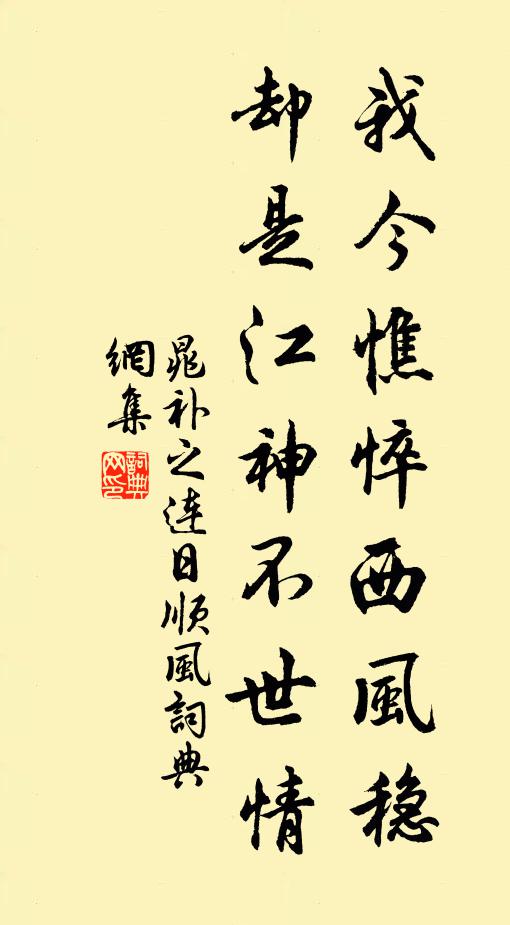 我今憔悴西風穩
却是江神不世情
晁补之連日順風詞典
網集
詞典
网印